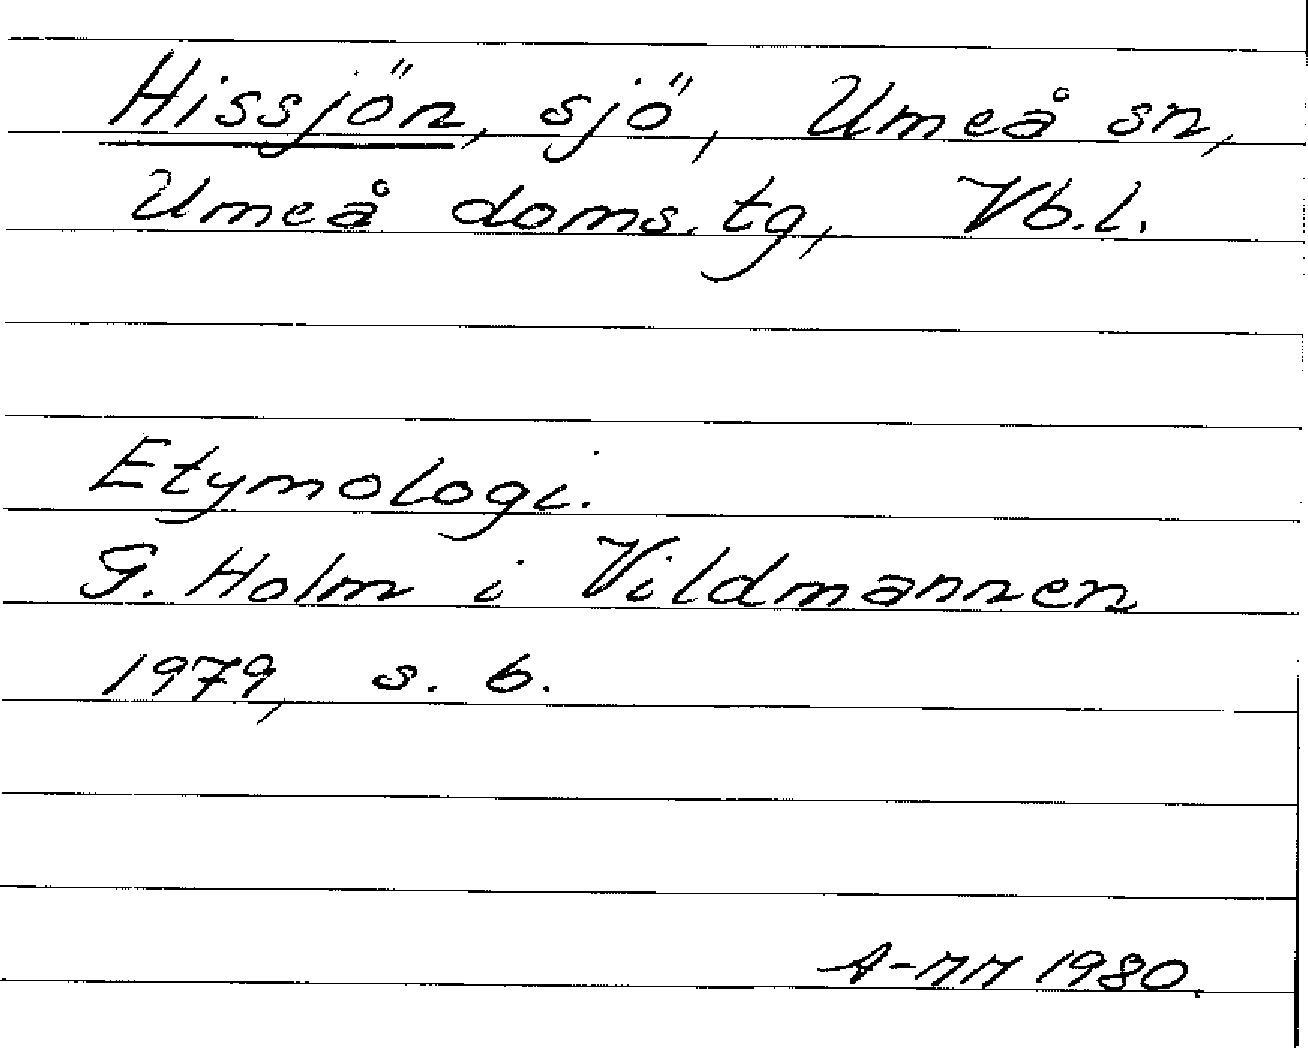 Hissjön, sjö, Umeå sn,
Umeå doms. tg, Vb.l.
Etymologi.
G. Holm i Vildmannen
1979, s. 6.
A-MM 1980.